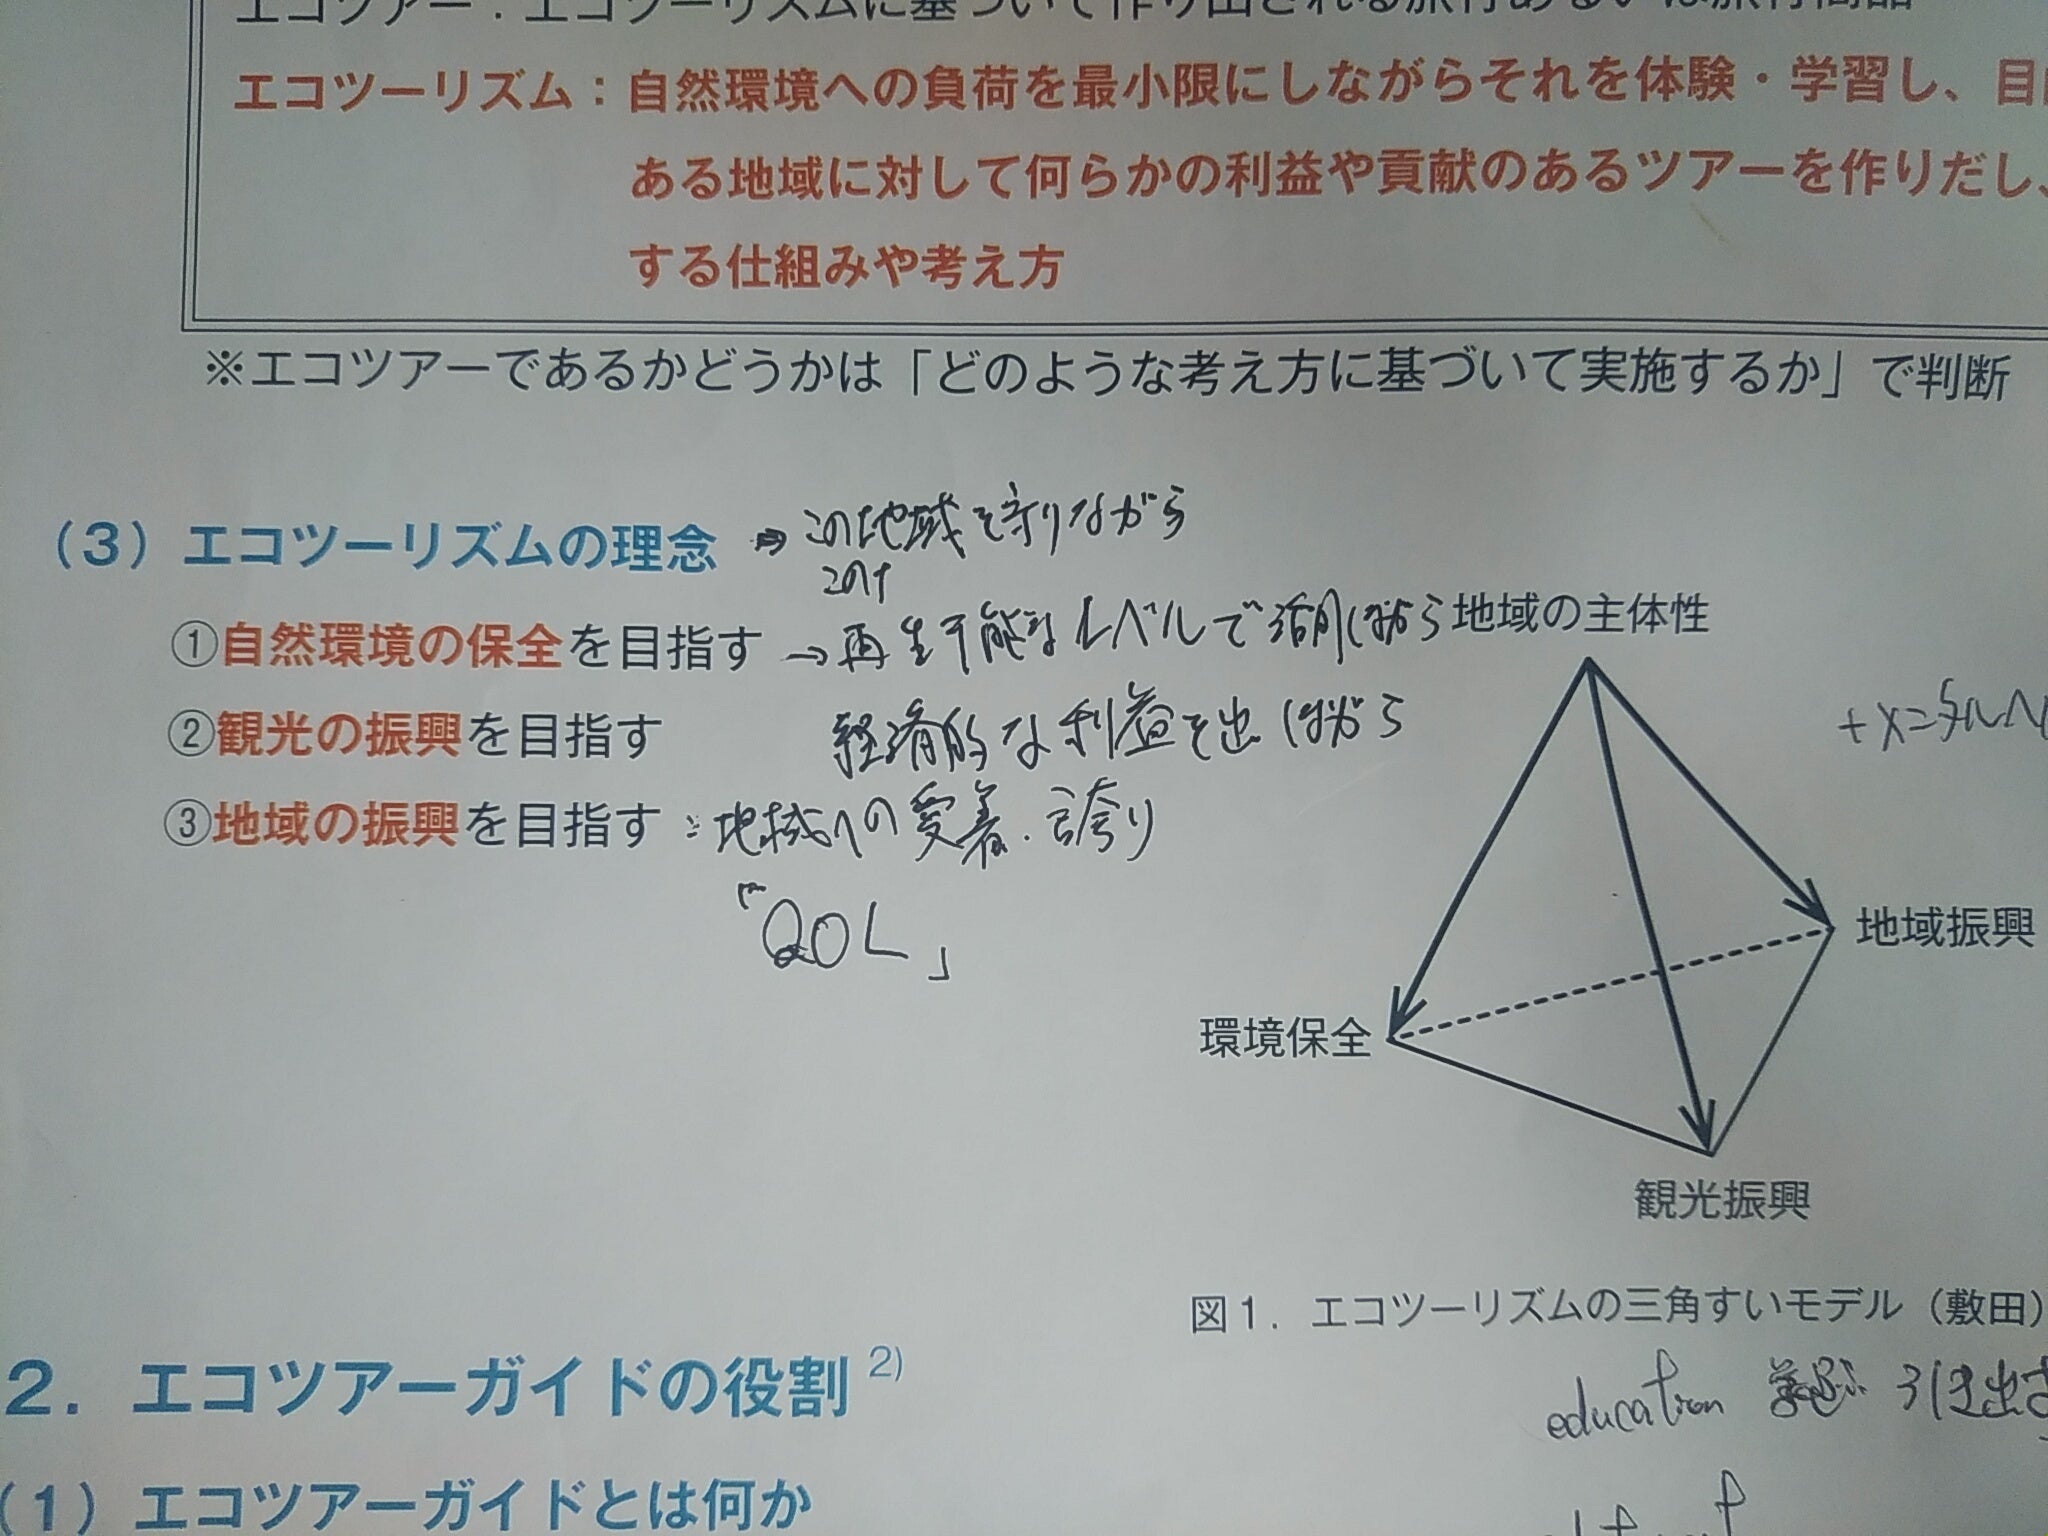 エコツアー：エコツーリズムに基づいて作り出される旅行あるいは旅行商品
エコツーリズム：自然環境への負荷を最小限にしながらそれを体験・学習し、目
ある地域に対して何らかの利益や貢献のあるツアーを作りだし、
する仕組みや考え方
※エコツアーであるかどうかは「どのような考え方に基づいて実施するか」で判断
（3）エコツーリズムの理念 ⇒ この地域を守りながら
このす
①自然環境の保全を目指す → 再生可能なレベルで活用しながら
②観光の振興を目指す 経済的な利益を出しながら
③地域の振興を目指す：地域への愛着・誇り
「QOL」
地域の主体性
地域振興
環境保全
観光振興
図1．エコツーリズムの三角すいモデル（敷田）
education 学ぶ 引き出す
2．エコツアーガイドの役割 2)
（1）エコツアーガイドとは何か